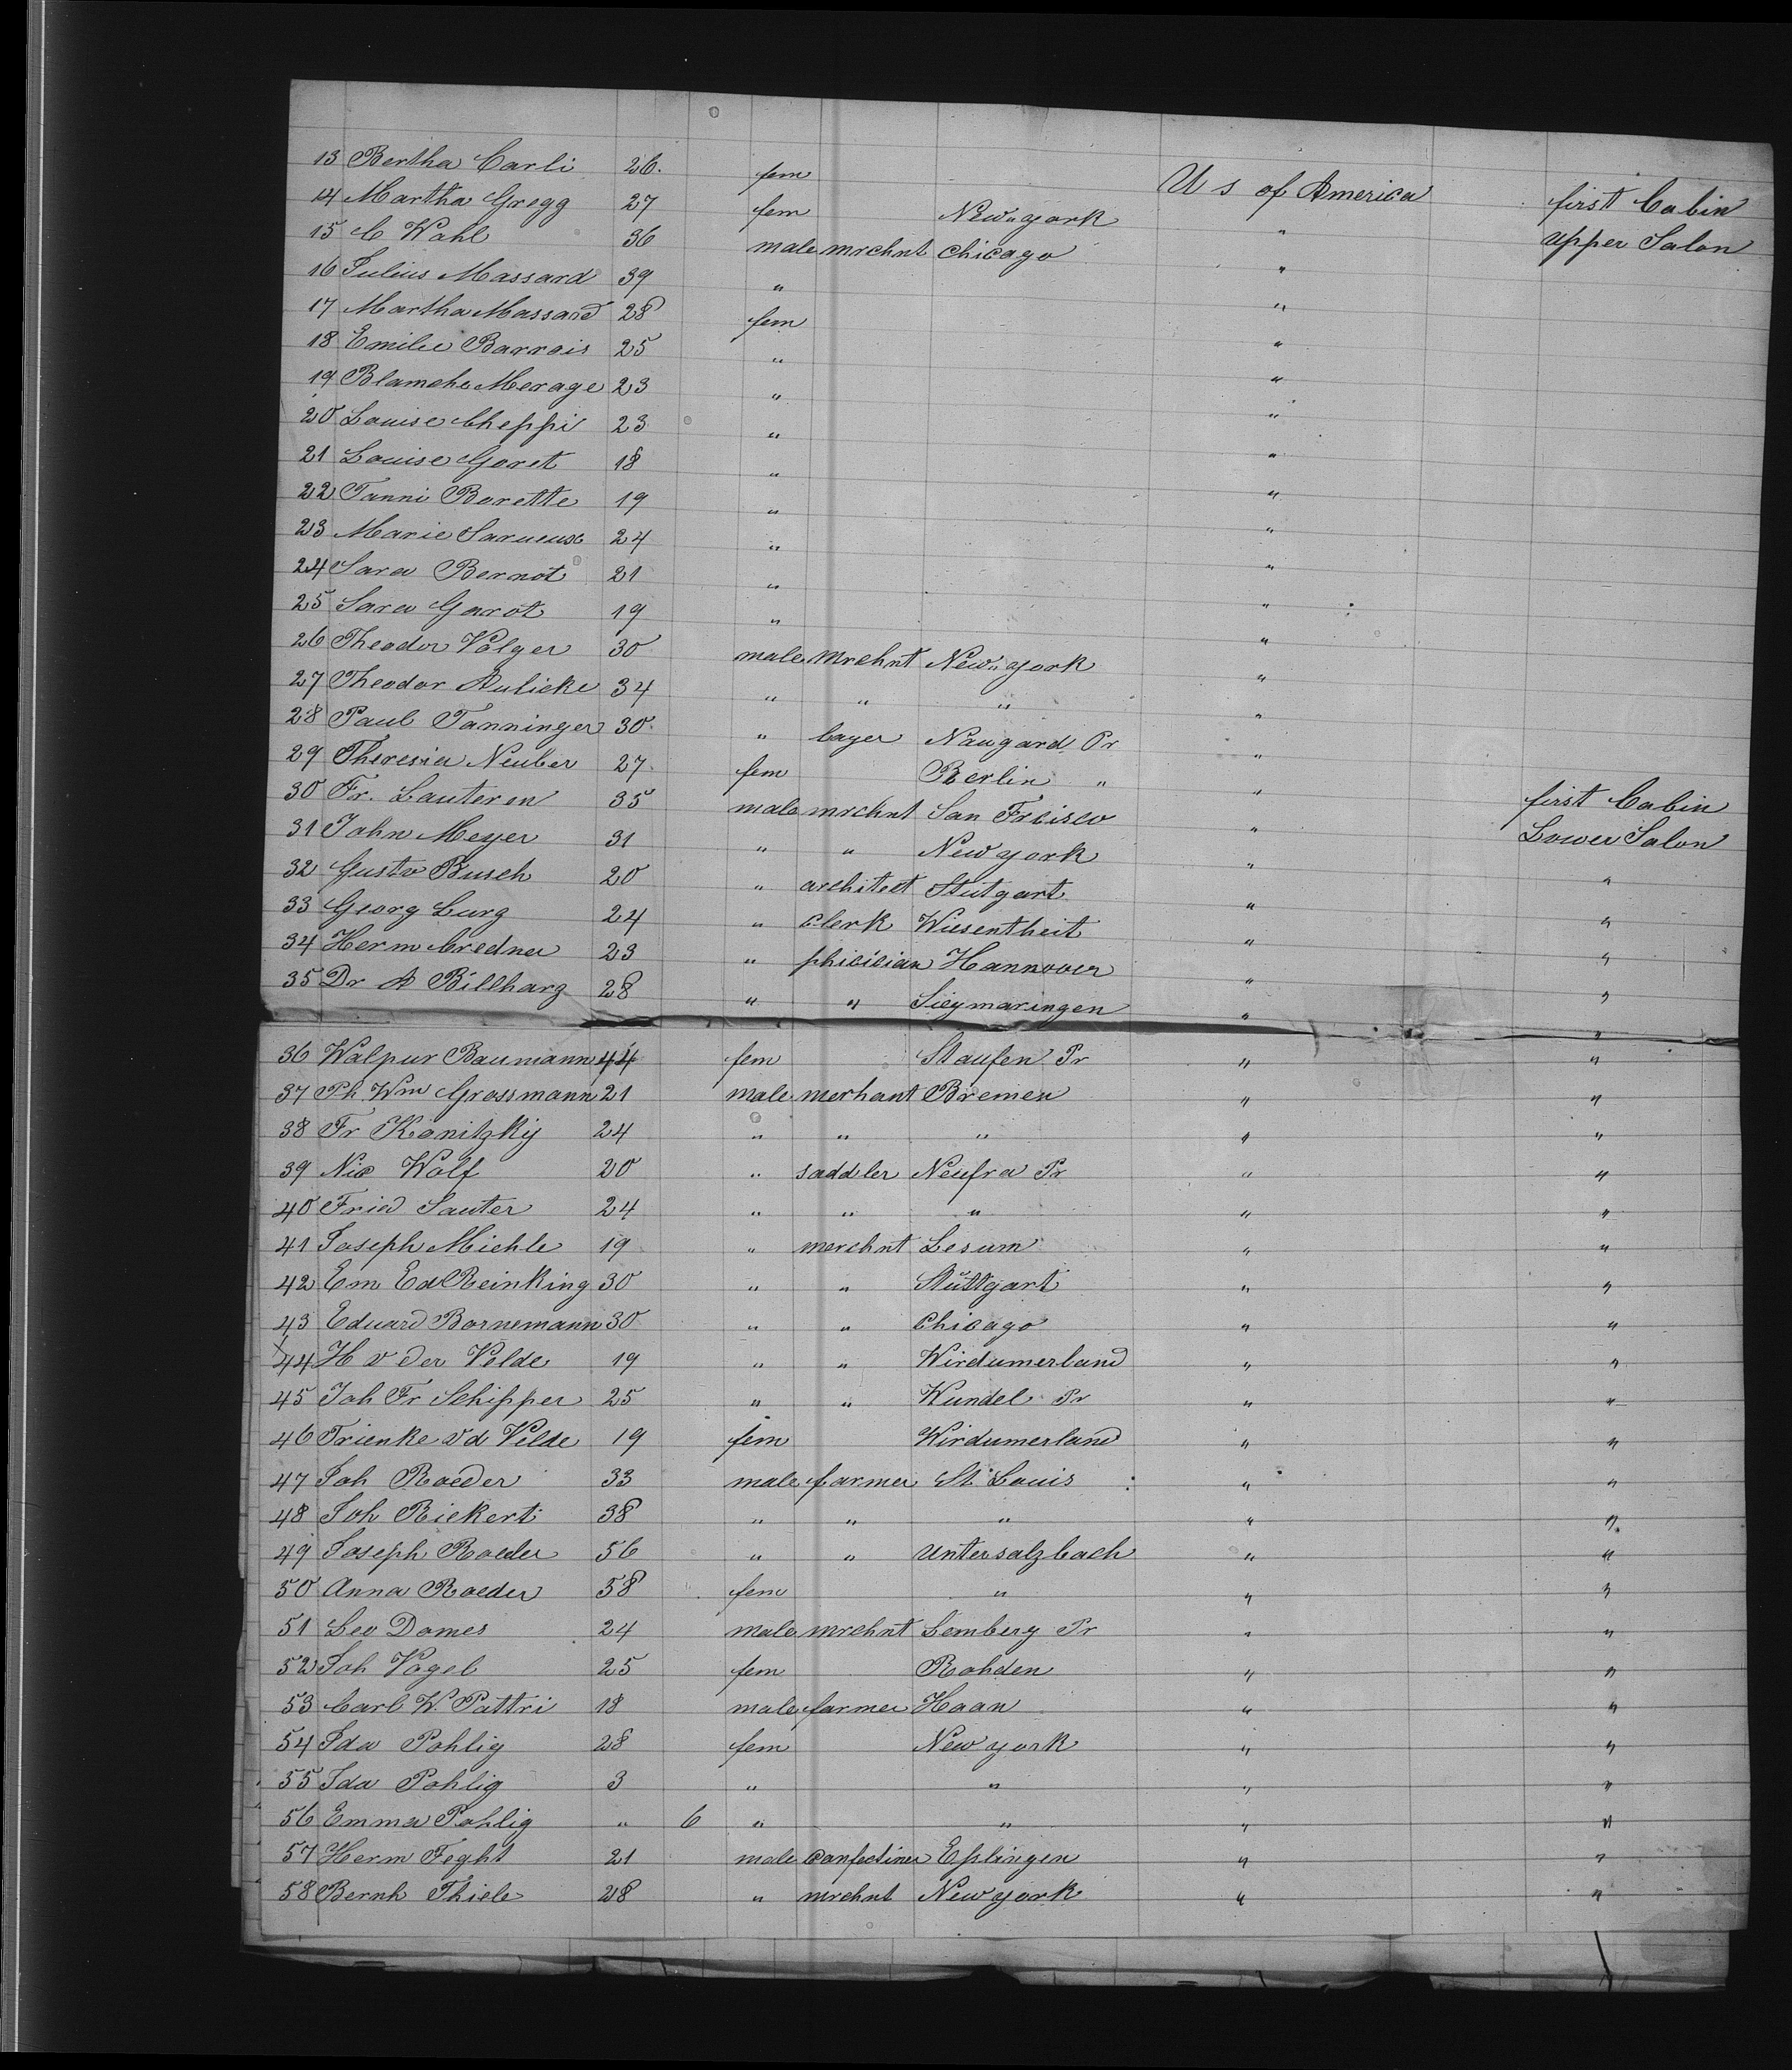 13 Bertha Carli 26. fem U s of America first Cabin
14 Martha Gregg 27 fem New"york " upper Salon
15 C Wahl 36 male mrchnt Chicago "
16 Julius Massard 39 " "
17 Martha Massard 28 fem "
18 Emilie Barrois 25 " "
19 Blamche Merage 23 " "
20 Louise Cheppi 23 " "
21 Louise Goret 18 " "
22 Fanni Borette 19 " "
23 Marie 24 " "
24 Sara Bernot 21 " "
25 Sara Garot 19 " "
26 Theodor Volger 30 male mrchnt New"york "
27 Theodor Aulicke 34 " " " "
28 Paul Fanninger 30 " Naugard Pr "
29 Theresia Neuber 27 fem Berlin " "
30 Fr. Lauteren 35 male mrchnt San Frcisco " first Cabin
31 John Meyer 31 " " New york " Lower Salon
32 Gustv Busch 20 " architect Stutgart " "
33 Georg Lurz 24 " Clerk Wiesentheit " "
34 Herm Credner 23 " phicician Hannover " "
35 Dr A Billharz 28 " " Sieymaringen " "
36 Walpur Baumann 44 fem Staufen Pr " "
37 Ph Wm Grossmann 21 male merhant Bremen " "
38 Fr Konitzky 24 " " " " "
39 Nic Wolf 20 " saddler Neufra Pr " "
40 Fried Sauter 24 " " " " "
41 Joseph Miehle 19 " merchnt Lesum " "
42 Em Ed Reinking 30 " " Stuttgart " "
43 Eduard Bornemann 30 " " Chicago " "
44 H v der Velde 19 " " Wirdumerland " "
45 Joh Fr Schipper 25 " " Wundel Pr " "
46 Trienke v d Velde 19 fem Wirdumerland " "
47 Joh Roeder 33 male farmer St Louis " "
48 Joh Rickert 38 " " " " "
49 Joseph Roeder 56 " " Untersalzbach " "
50 Anna Roeder 58 fem " " "
51 Leo Domes 24 male mrchnt Lemberg Pr " "
52 Joh Vogel 25 fem Rohden " "
53 Carl W. Pattri 18 male farmer Haan " "
54 Ida Pohlig 28 fem New york " "
55 Ida Pohlig 3 " " " "
56 Emma Pohlig " 6 " " " "
57 Herm Feght 21 male Confectiner Eßlingen " "
58 Bernh Thiele 28 " mrchnt New york " "